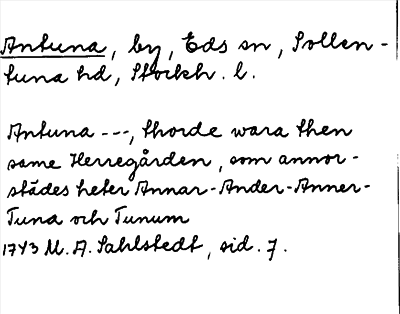 Antuna, by, Eds sn, Sollen-
tuna hd, Stockh. l.
Antuna ---, thorde wara then
same Herregården, som annor-
städes heter Annar-Ander-Anner-
Tuna och Tunum
1743 M. A. Sahlstedt, sid. 7.